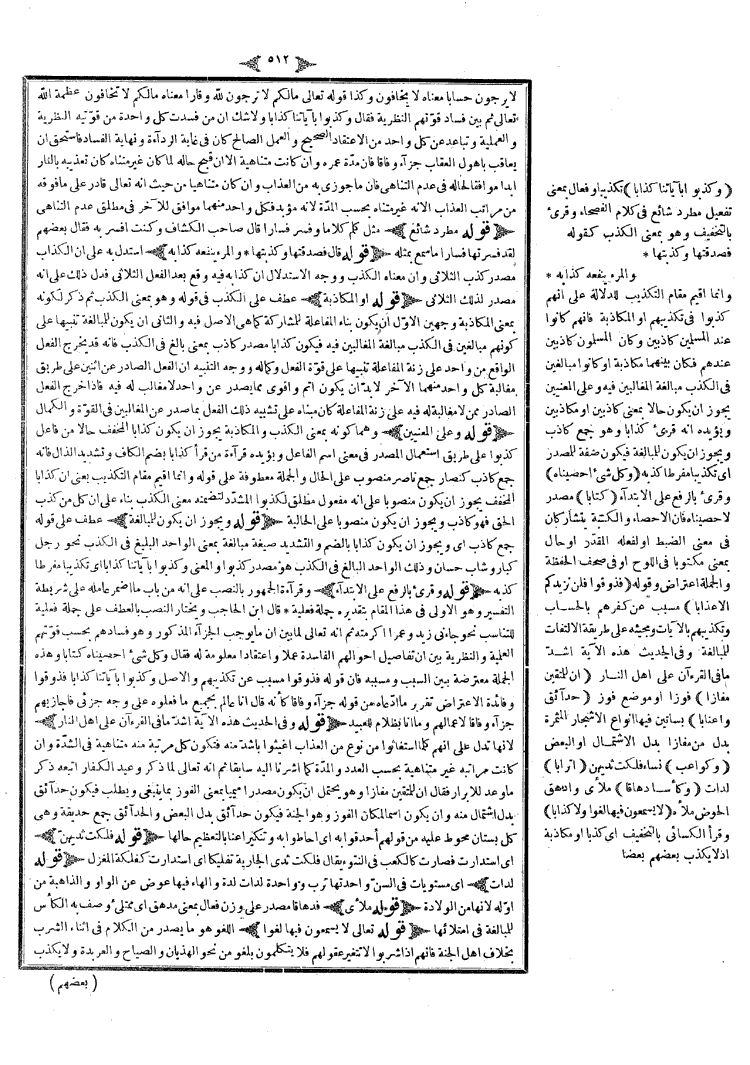 ٥١٢
لا يرجون حسابا معناه لا يخافون وكذا قوله تعالى مالكم لا ترجون لله وقارا معناه مالكم لا تخافون عظمة الله
تعالى ثم بين فساد قوتهم النظرية فقال وكذبوا بآياتنا كذابا ولاشك ان من فسدت كل واحدة من قوتيه النظرية
والعملية و تباعد عن كل واحد من الاعتقاد الصحيح والعمل الصالح كان فى غاية الردآءة ونهاية الفساد فاستحق ان
يعاقب باهول العقاب جزآء وفاقا فان مدة عمره وان كانت متناهية الا ان قبح حاله لما كان غير متناه كان تعذيبه بالنار
ابدا موافقا لحاله فى عدم التناهى فان ما جوزى به من العذاب وان كان متناهيا من حيث انه تعالى قادر على ما فوقه
من مراتب العذاب الا انه غير متناه بحسب المدة لانه مؤبد فكل واحد منهما موافق للآخر فى مطلق عدم التناهى
﴿ قوله مطرد شائع ﴾ مثل كلم كلاما وفسر فسارا قال صاحب الكشاف وكنت افسر به فقال بعضهم
لقد فسرتها فسارا ما سمع بمثله ﴿ قوله قال فصدقتها وكذبتها * والمرء ينفعه كذابه ﴾ استدل به على ان الكذاب
مصدر كذب الثلاثى وان معناه الكذب ووجه الاستدلال ان كذابه فيه وقع بعد الفعل الثلاثى فدل ذلك على انه
مصدر لذلك الثلاثى ﴿ قوله او المكاذبة ﴾ عطف على الكذب فى قوله وهو بمعنى الكذب ثم ذكر لكونه
بمعنى المكاذبة وجهين الاول ان يكون بناء المفاعلة للمشاركة كما هى الاصل فيه والثانى ان يكون للمبالغة تنبيها على
كونهم مبالغين فى الكذب مبالغة المغالبين فيه فيكون كذابا مصدر كاذب بمعنى بالغ فى الكذب فانه قد يخرج الفعل
الواقع من واحد على زنة المفاعلة تنبيها على قوة الفعل وكماله ووجه التنبيه ان الفعل الصادر عن اثنين على طريق
مغالبة كل واحد منهما الآخر لابد ان يكون اتم واقوى مما يصدر عن واحد لا مغالب له فيه فاذا اخرج الفعل
الصادر ممن لا مغالبة له فيه على زنة المفاعلة كان مبناه على تشبيه ذلك الفعل بما صدر عن المغالبين فى القوة والكمال
﴿ قوله وعلى المعنيين ﴾ وهما كونه بمعنى الكذب والمكاذبة يجوز ان يكون كذابا المخفف حالا من فاعل
كذبوا على طريق استعمال المصدر فى معنى اسم الفاعل ويؤيده قرآءة من قرأ كذابا بضم الكاف وتشديد الذال فانه
جمع كاذب كنصار جمع ناصر منصوب على الحال والجملة معطوفة على قوله وانما اقيم مقام التكذيب يعنى ان كذابا
المخفف يجوز ان يكون منصوبا على انه مفعول مطلق لكذبوا المشدد لتضمنه معنى الكذب بناء على ان كل من كذب
الحق فهو كاذب ويجوز ان يكون منصوبا على الحالية ﴿ قوله ويجوز ان يكون للمبالغة ﴾ عطف على قوله
جمع كاذب اى ويجوز ان يكون كذابا بالضم والتشديد صيغة مبالغة بمعنى الواحد البليغ فى الكذب نحو رجل
كبار وشاب حسان وذلك الواحد البالغ فى الكذب هو مصدر كذبوا والمعنى وكذبوا بآياتنا كذابا اى تكذيبا مفرطا
كذبه ﴿ قوله وقرئ بالرفع على الابتدآء ﴾ وقرآءة الجمهور بالنصب على انه من باب ما اضمر عامله على شريطة
التفسير وهو الاولى فى هذا المقام بتقديره جملة فعلية * قال ابن الحاجب ويختار النصب بالعطف على جملة فعلية
للتناسب نحو جاءنى زيد وعمرا اكرمته ثم انه تعالى لما بين ان ما يوجب الجزآء المذكور وهو فسادهم بحسب قوتهم
العملية والنظرية بين ان تفاصيل احوالهم الفاسدة عملا واعتقادا معلومة له فقال وكل شئ احصيناه كتابا وهذه
الجملة معترضة بين السبب ومسببه فان قوله فذوقوا مسبب عن تكذيبهم والاصل وكذبوا بآياتنا كذابا فذوقوا
وفائدة الاعتراض تقرير ما ادعاه من قوله جزآء وفاقا كأنه قال انا عالم بجميع ما فعلوه على وجه جزئى فاجازيهم
جزآء وفاقا لاعمالهم وما انا بظلام للعبيد ﴿ قوله وفى الحديث هذه الآية اشد ما فى القرءآن على اهل النار ﴾
لانها تدل على انهم كلما استغاثوا من نوع من العذاب اغيثوا باشد منه فتكون كل مرتبة منه متناهية فى الشدة وان
كانت مراتبه غير متناهية بحسب العدد والمدة كما اشرنا اليه سابقا ثم انه تعالى لما ذكر وعيد الكفار اتبعه ذكر
ما وعد للابرار فقال ان للمتقين مفازا وهو يحتمل ان يكون مصدرا ميميا بمعنى الفوز بما ينبغى ويطلب فيكون حدآئق
بدل اشتمال منه وان يكون اسما لمكان الفوز وهو الجنة فيكون حدآئق بدل البعض والحدآئق جمع حديقة وهى
كل بستان محوط عليه من قولهم أحدقوا به اى احاطوا به وتنكير اعنابا لتعظيم حالها ﴿ قوله فلكت ثديهن ﴾
اى استدارت فصارت كالكعب فى النتوء يقال فلكت ثدى الجارية تفليكا اى استدارت كفلكة المغزل ﴿ قوله
لدات ﴾ اى مستويات فى السن واحدتها ترب وواحدة لدات لدة والهاء فيها عوض عن الواو والذاهبة من
اوله لانها من الولادة ﴿ قوله ملأى ﴾ فدهاقا مصدر على وزن فعال بمعنى مدهق اى ممتلئ وصف به الكأس
للمبالغة فى امتلائها ﴿ قوله تعالى لا يسمعون فيها لغوا ﴾ اللغو هو ما يصدر من الكلام فى اثناء الشرب
بخلاف اهل الجنة فانهم اذا شربوا لا تتغير عقولهم فلا يتكلمون بلغو من نحو الهذيان والصياح والعربدة ولا يكذب
( بعضهم )
( وكذبوا بآياتنا كذابا ) تكذيبا وفعال بمعنى
تفعيل مطرد شائع فى كلام الفصحاء وقرئ
بالتخفيف وهو بمعنى الكذب كقوله
فصدقتها وكذبتها *
والمرء ينفعه كذابه *
وانما اقيم مقام التكذيب للدلالة على انهم
كذبوا فى تكذيبهم او المكاذبة فانهم كانوا
عند المسلمين كاذبين وكان المسلمون كاذبين
عندهم فكان بينهما مكاذبة او كانوا مبالغين
فى الكذب مبالغة المغالبين فيه وعلى المعنيين
يجوز ان يكون حالا بمعنى كاذبين او مكاذبين
ويؤيده انه قرئ كذابا وهو جمع كاذب
ويجوز ان يكون للمبالغة فيكون صفة للمصدر
اى تكذيبا مفرطا كذبه ( وكل شئ احصيناه )
وقرئ بالرفع على الابتدآء ( كتابا ) مصدر
لاحصيناه فان الاحصاء والكتبة يتشاركان
فى معنى الضبط او لفعله المقدر او حال
بمعنى مكتوبا فى اللوح او فى صحف الحفظة
والجملة اعتراض وقوله ( فذوقوا فلن نزيدكم
الا عذابا ) مسبب عن كفرهم بالحساب
وتكذيبهم بالآيات ومجيئه على طريقة الالتفات
للمبالغة وفى الحديث هذه الآية اشد
ما فى القرءآن على اهل النار ( ان للمتقين
مفازا ) فوزا او موضع فوز ( حدآئق
واعنابا ) بساتين فيها انواع الاشجار المثمرة
بدل من مفازا بدل الاشتمال او البعض
( وكواعب ) نساء فلكت ثديهن ( اترابا )
لدات ( وكأسا دهاقا ) ملأى وادهق
الحوض ملأه ( لا يسمعون فيها لغوا ولا كذابا )
وقرأ الكسائى بالتخفيف اى كذبا او مكاذبة
اذ لا يكذب بعضهم بعضا